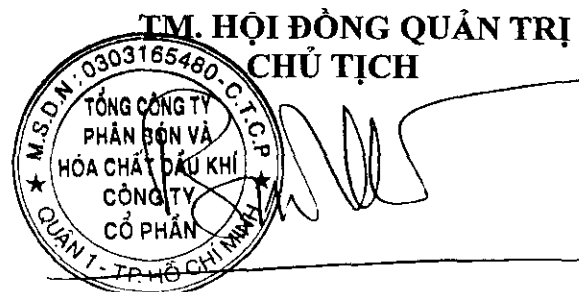 TM. HỘI ĐỒNG QUẢN TRỊ
CHỦ TỊCH
M.S.D.N: 0303165480-C.T.C.P
TỔNG CÔNG TY
PHÂN BÓN VÀ
HÓA CHẤT DẦU KHÍ
CÔNG TY
CỔ PHẦN
QUẬN 1 - TP. HỒ CHÍ MINH